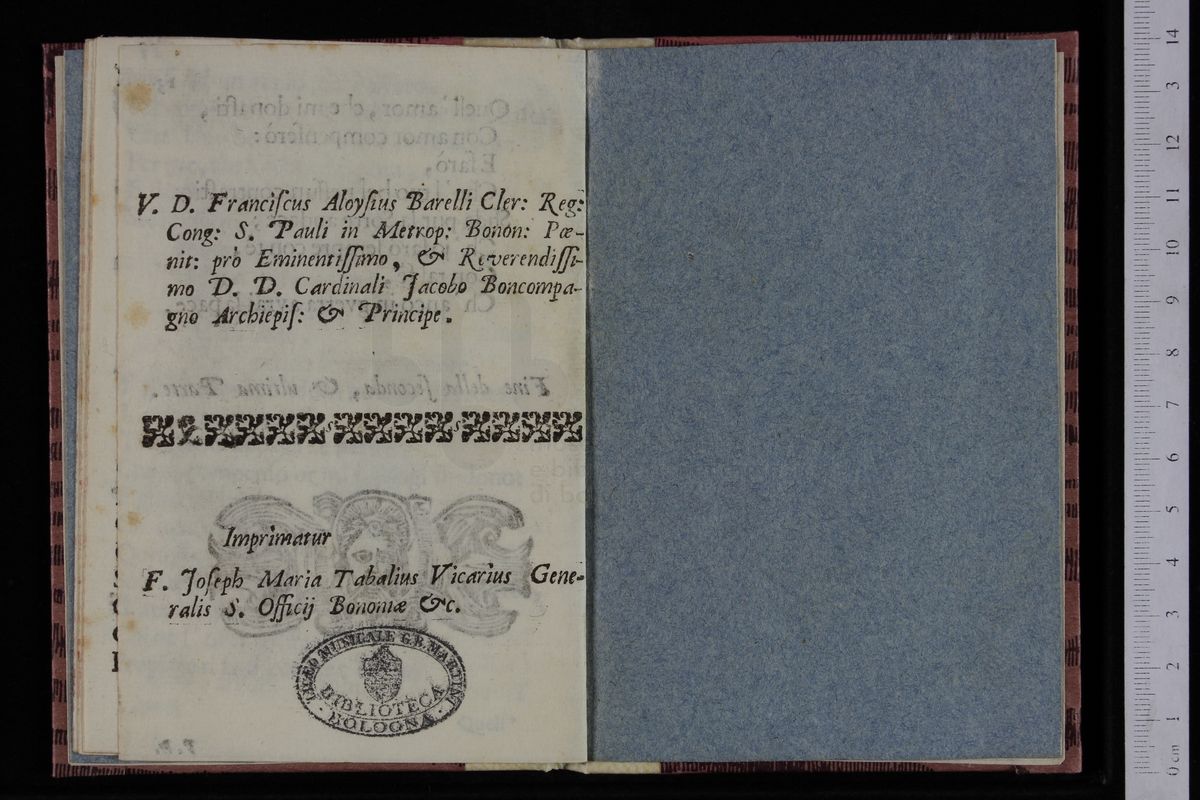 V. D. Franciſcus Aloyſius Barelli Cler: Reg:
Cong: S. Pauli in Metrop: Bonon: Pœ-
nit: prò Eminentiſſimo, & Reverendiſſi-
mo D. D. Cardinali Jacobo Boncompa-
gno Archiepiſ: & Principe.
Imprimatur
F. Joſeph Maria Tabalius Vicarius Gene-
ralis S. Officij Bononiæ &c.
LICEO MUSICALE G.B. MARTINI
BIBLIOTECA
BOLOGNA
Fine della ſeconda, & ultima Parte.
14
3
12
11
10
9
8
7
6
5
4
3
2
1
0 cm